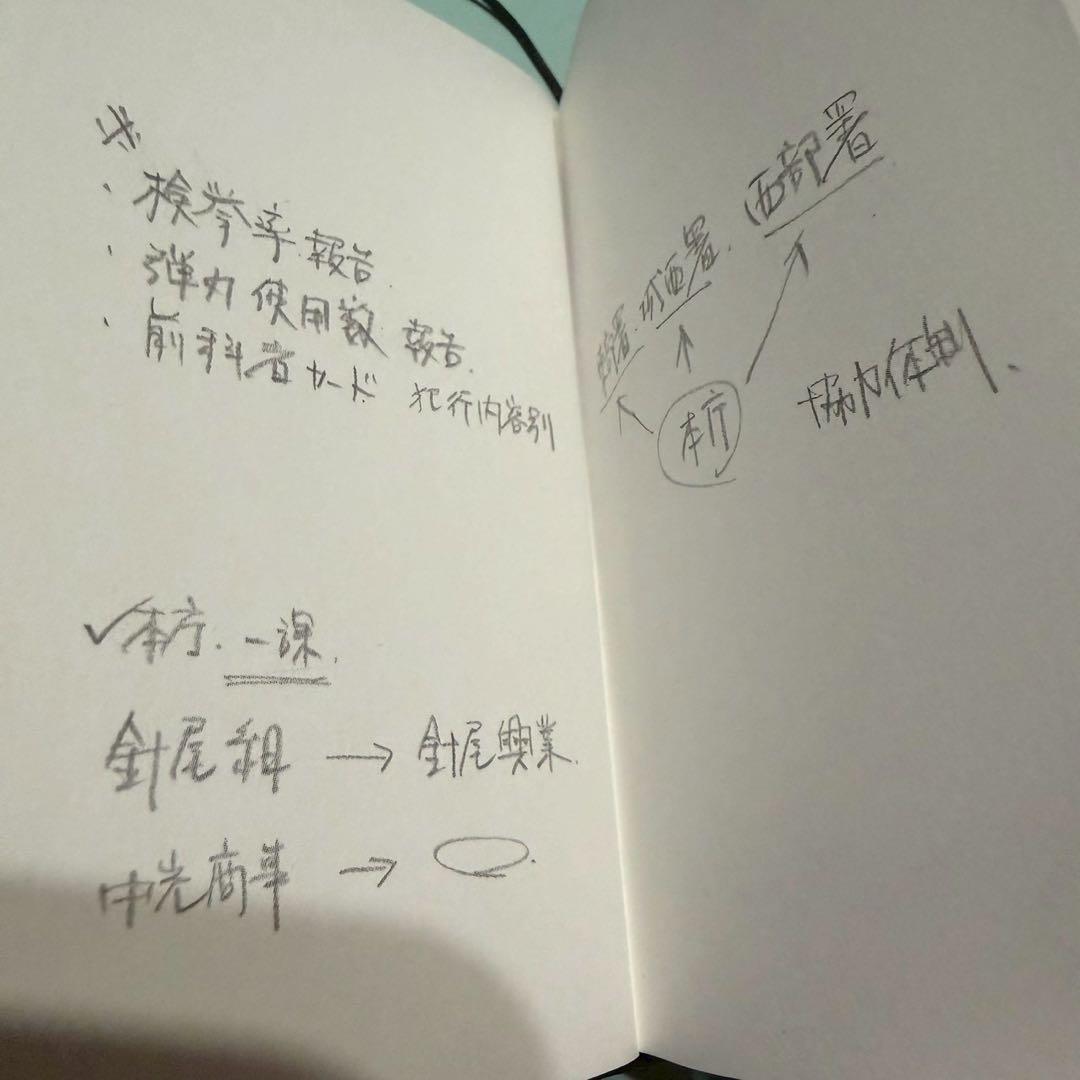 ※
・検挙率 報告
・弾力 使用数 報告.
・前科者カード 犯行内容別
✓本庁. 一課.
針尾組 → 針尾興業.
中光商事 → 
西部署
署.
西署.
本庁
協力体制.